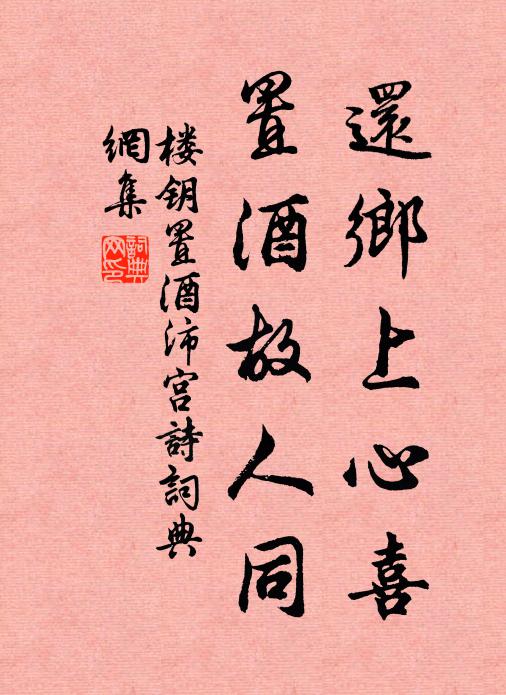 還鄉上心喜
置酒故人同
楼钥置酒沛宫詩詞典
網集
詞典网印